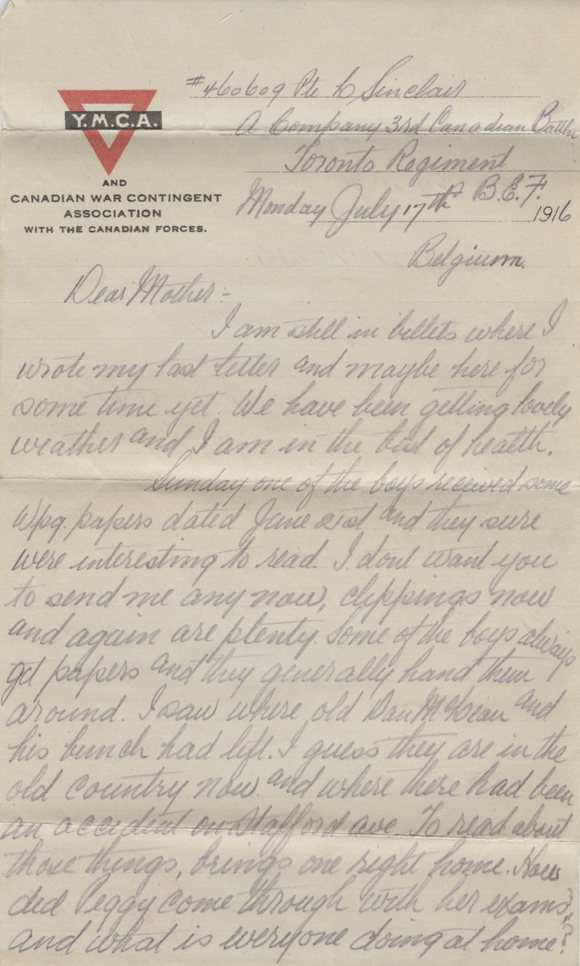 #460609 Pte L Sinclair
A Company 3rd Canadian Battln
Toronto Regiment
Y.M.C.A.
AND
CANADIAN WAR CONTINGENT
ASSOCIATION
WITH THE CANADIAN FORCES.
B.E.F.
Monday July 17th 1916
Belgium.
Dear Mother:-
I am still in billets where I
wrote my last letter and maybe here for
some time yet. We have been getting lovely
weather and I am in the best of health.
Sunday one of the boys received some
Wpg. papers dated June 21st and they sure
were interesting to read. I dont want you
to send me any now, clippings now
and again are plenty. Some of the boys always
get papers and they generally hand them
around. I saw where old Dan McLean and
his bunch had left. I guess they are in the
old country now and where there had been
an accident on Stafford ave. To read about
those things, brings one right home. How
did Peggy come through with her exams
and what is everyone doing at home?